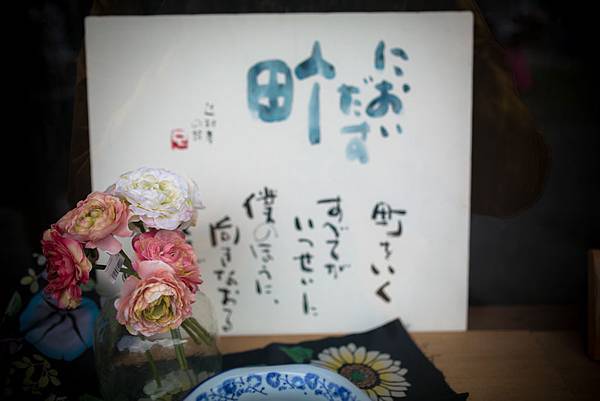 におい
だす
町
町をいく
すべてが
いっせいに
僕のほうに、
向きなおる